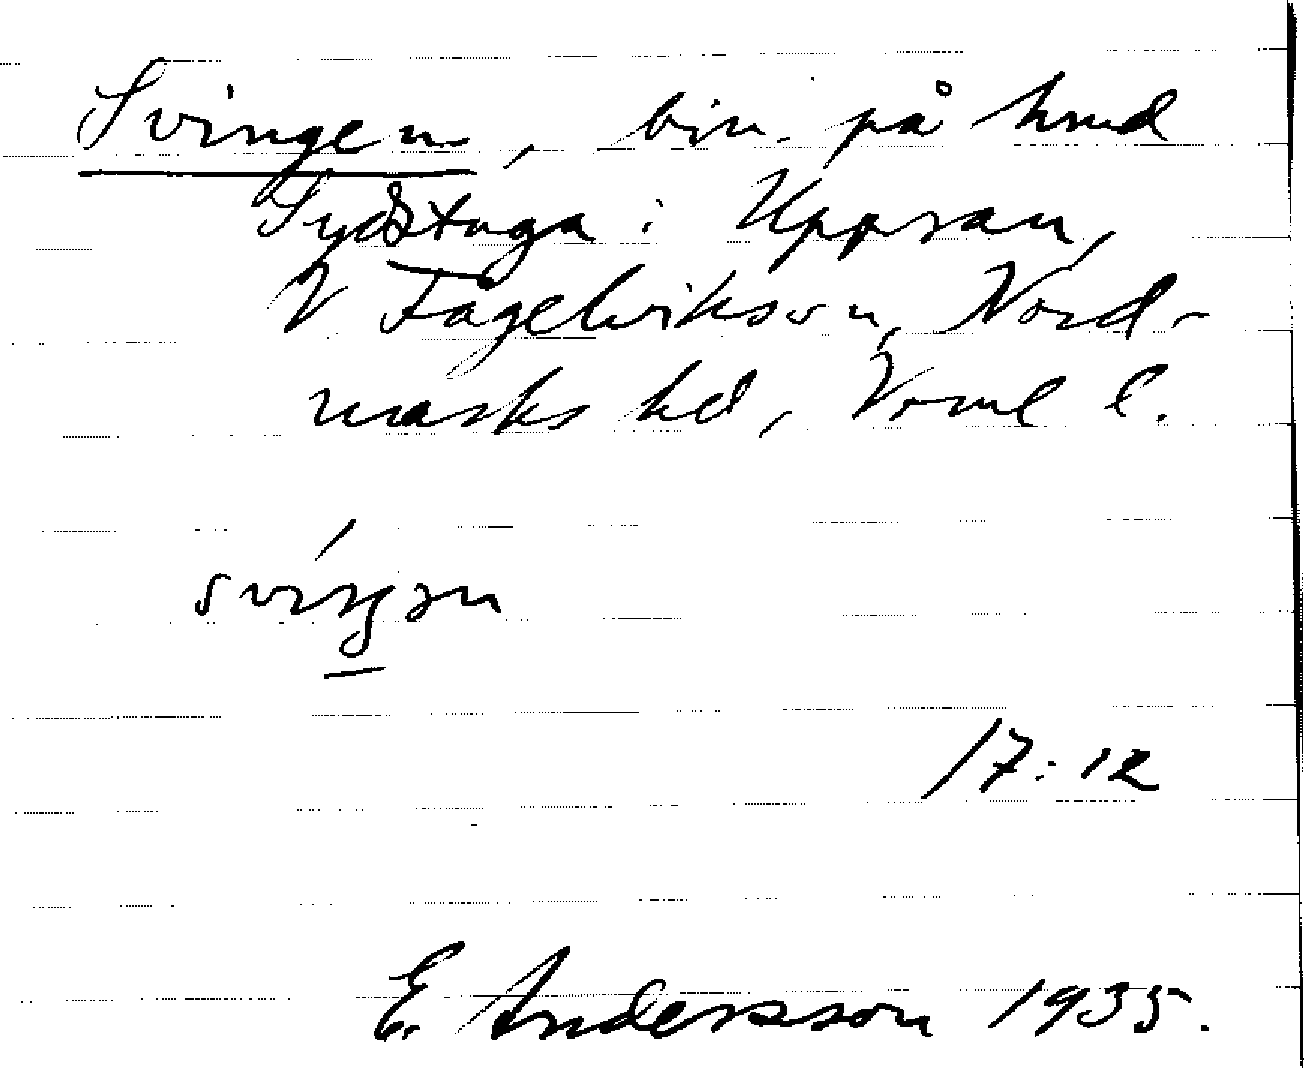 Svingen, bin. på hmd
Sydstuga i Uppsan,
V Fågelviks sn, Nord-
marks hd, Vrml l.
sviŋən
17:12
E. Andersson 1935.